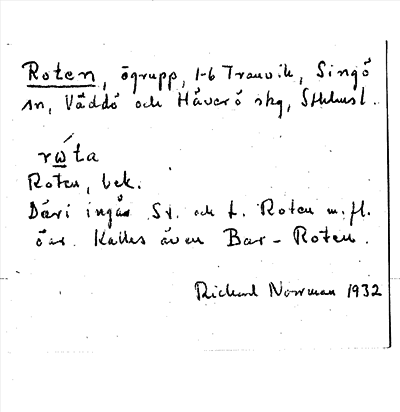 Roten, ögrupp, 1-6 Tranvik, Singö
sn, Väddö och Håverö skg, Sthlmsl.
rω´ta
Roten, bek.
Däri ingår St. och L. Roten m. fl.
öar. Kallas även Bar-Roten.
Richard Norrman 1932